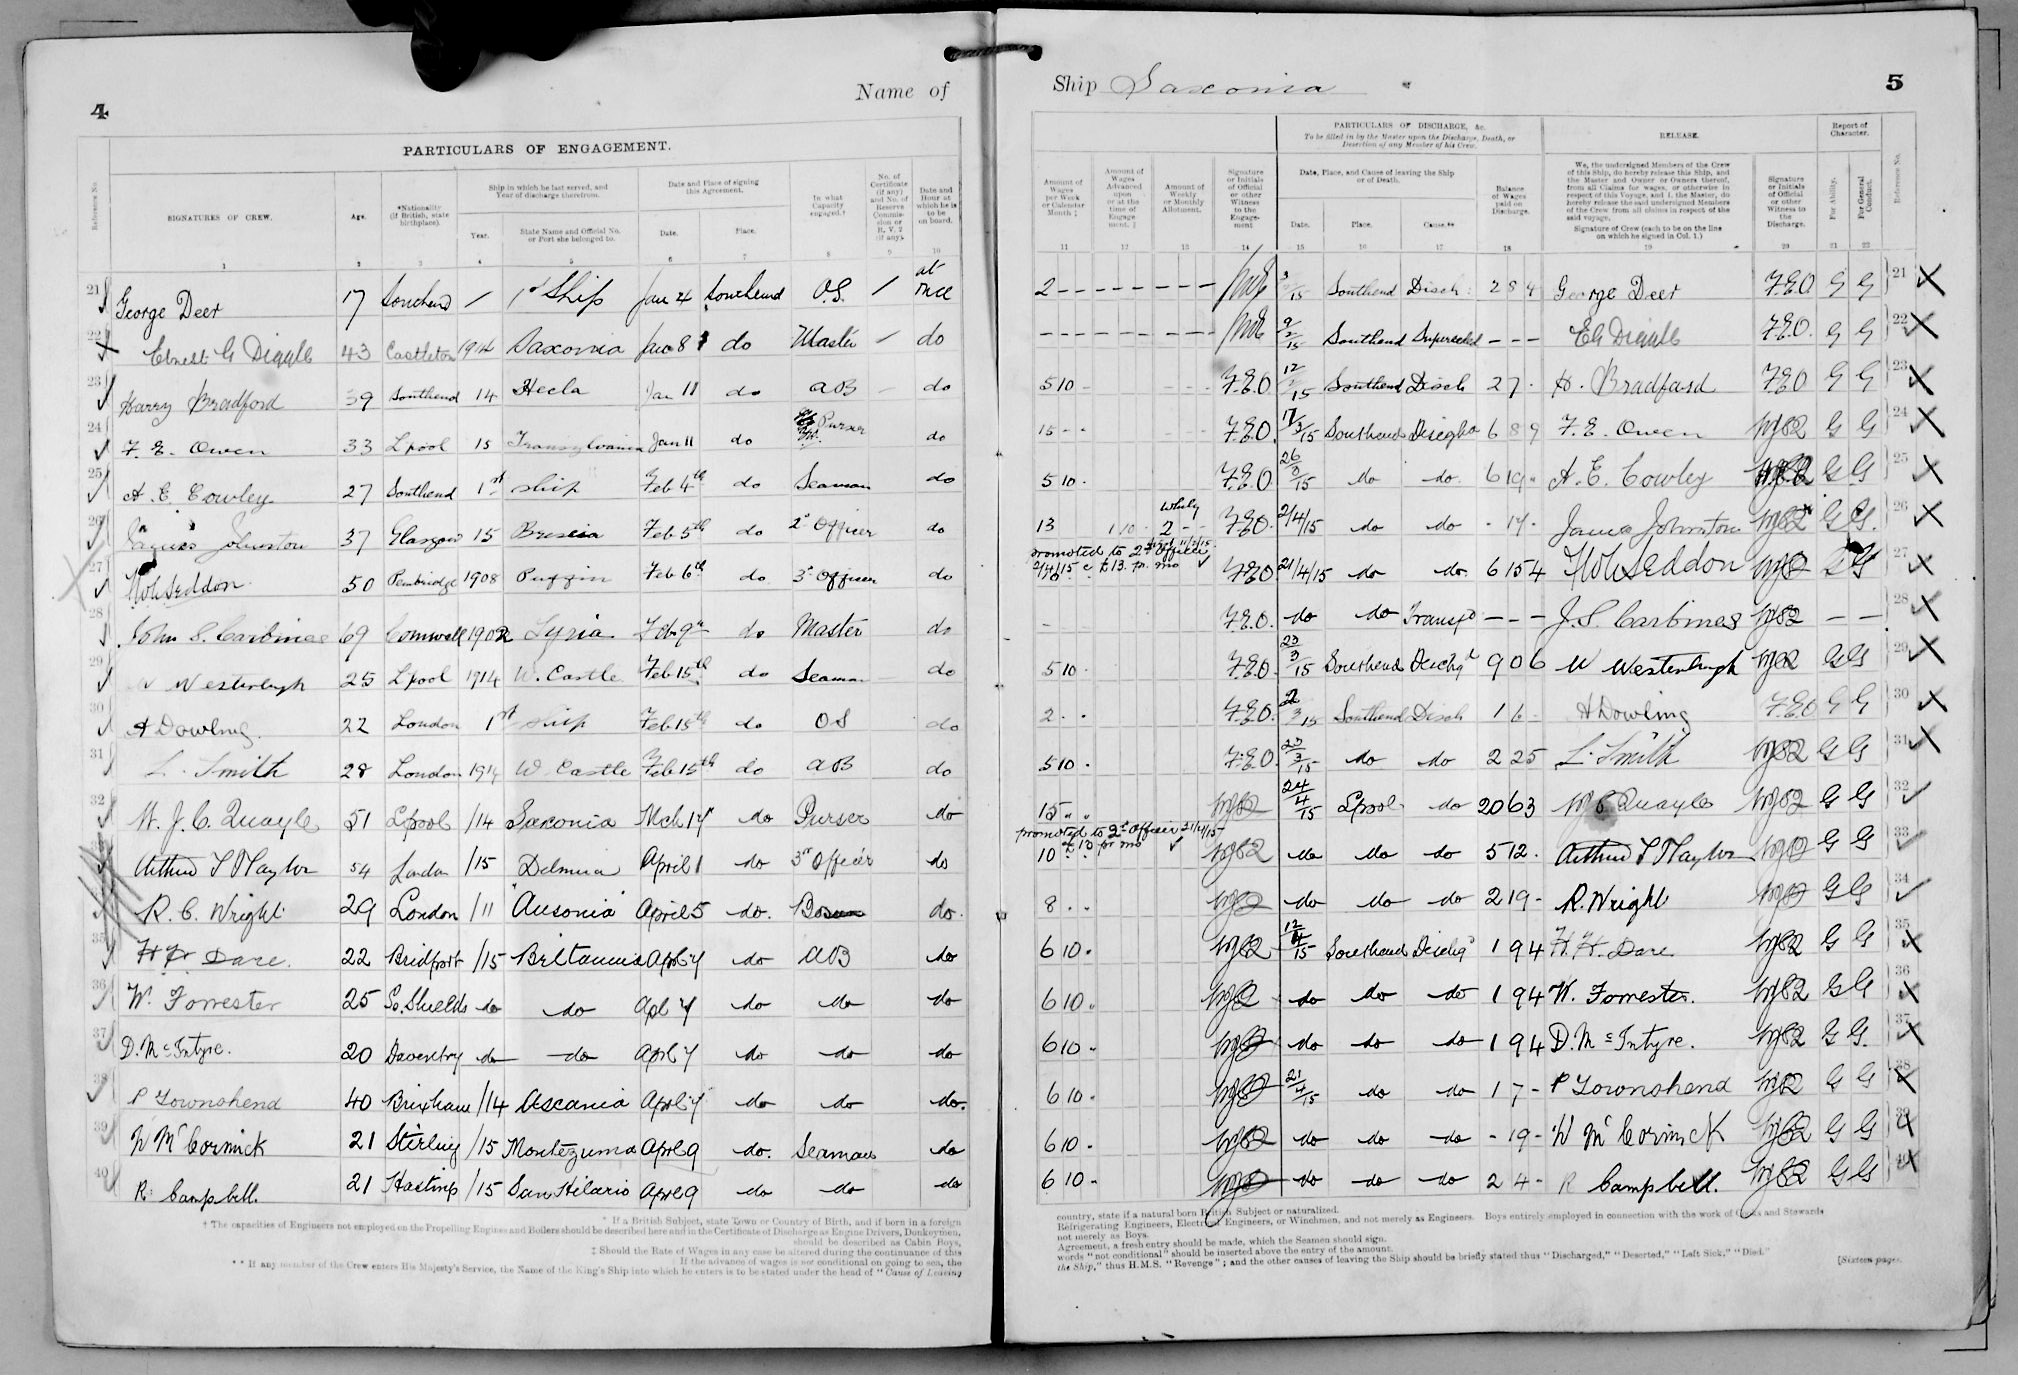 4
Name of
PARTICULARS OF ENGAGEMENT.
Reference No.
SIGNATURES OF CREW.
Age.
*Nationality (if British, state birthplace).
Ship in which he last served, and Year of discharge therefrom.
Year.
State Name and Official No. or Port she belonged to.
Date and Place of signing this Agreement.
Date.
Place.
In what Capacity engaged.†
No. of Certificate (if any) and No. of Reserve Commission or R.V.2 (if any).
Date and Hour at which he is to be on board.
1 2 3 4 5 6 7 8 9 10
21 George Deer 17 Southend / 1st Ship Jan 4 Southend O.S. / at once
22 Ernest G Diggle 43 Castleton 1914 Saxonia Jan 8 do Master - do
23 Harry Bradford 39 Southend 14 Hecla Jan 11 do AB - do
24 F. E. Owen 33 Lpool 15 Transylvania Jan 11 do Purser do
25 A. E. Cowley 27 Southend 1st ship Feb 4th do Seaman do
26 James Johnston 37 Glasgow 15 Brescia Feb 5th do 2d Officer do
27 Seddon 50 Pembridge 1908 Puffin Feb 6th do 3d Officer do
28 John S. Carbines 69 Cornwall 1902 Syria Feb 9th do Master do
29 W Westerburgh 25 Lpool 1914 W. Castle Feb 15th do Seaman do
30 A Dowling. 22 London 1st ship Feb 15th do OS do
31 L. Smith 28 London 1914 W Castle Feb 15th do AB do
32 W. J. C. Quayle 51 Lpool /14 Saxonia Mch 17 do Purser do
Arthur S Naylor 54 London /15 Delmira April 1 do 3rd Officer do
R. C. Wright 29 London /11 "Ausonia" April 5 do. Bosun do.
35 H H Dare. 22 Bridport /15 Brittannia Apl 7 do AB do
36 W. Forrester 25 So. Shields do do Apl 7 do do do
37 D. McIntyre. 20 Daventry do do Apl 7 do do do
38 P Townshend 40 Brixham /14 Ascania Apl 7 do do do.
39 W McCormick 21 Stirling /15 Montezuma Apl 9 do. Seaman do
40 R. Campbell. 21 Hastings /15 San Hilario Apl 9 do do do
* If a British Subject, state Town or Country of Birth, and if born in a foreign
† The capacities of Engineers not employed on the Propelling Engines and Boilers should be described here and in the Certificate of Discharge as Engine Drivers, Donkeymen,
should be described as Cabin Boys,
‡ Should the Rate of Wages in any case be altered during the continuance of this
If the advance of wages is not conditional on going to sea, the
** If any member of the Crew enters His Majesty's Service, the Name of the King's Ship into which he enters is to be stated under the head of "Cause of Leaving
Ship Saxonia
5
Amount of Wages per Week or Calendar Month ‡
Amount of Wages Advanced upon or at the time of Engagement. ‡
Amount of Weekly or Monthly Allotment.
Signature or Initials of Official or other Witness to the Engagement
PARTICULARS OF DISCHARGE, &c.
To be filled in by the Master upon the Discharge, Death, or Desertion of any Member of his Crew.
Date, Place, and Cause of leaving the Ship or of Death.
Date.
Place.
Cause.**
Balance of Wages paid on Discharge.
RELEASE.
We, the undersigned Members of the Crew of this Ship, do hereby release this Ship, and the Master and Owner or Owners thereof, from all Claims for wages, or otherwise in respect of this Voyage, and I, the Master, do hereby release the said undersigned Members of the Crew from all claims in respect of the said voyage.
Signature of Crew (each to be on the line on which he signed in Col. 1.)
Signature or Initials of Official or other Witness to the Discharge.
Report of Character.
For Ability.
For General Conduct.
Reference No.
11 12 13 14 15 16 17 18 19 20 21 22
2 - - - 3/15 Southend Disch: 2 8 4 George Deer F.E.O. G G 21
- - - 9/2/15 Southend Superseded - - - EG Diggle F.E.O. G G 22
5 10 - F.E.O 12/15 Southend Disch 2 7 . H. Bradford F.E.O G G 23
15 - - F.E.O. 17/3/15 Southend Dischgd 6 8 9 F. E. Owen G G 24
5 10 . F.E.O 26/3/15 do do. 6 19 . A. E. Cowley G G 25
13 1 10 . Whly 2 - - F.E.O. 2/4/15 do do - 17 . James Johnston G G. 26
promoted to 2d Officer
2/4/15 @ £13. pr. mo F.E.O 21/4/15 do do. 6 15 4 Seddon G G 27
- F.E.O. do do Transfd - - - J. S. Carbines - - 28
5 10 . F.E.O. 23/3/15 Southend Dischgd 9 0 6 W Westerburgh G G 29
2 . . F.E.O. 2/3/15 Southend Disch 1 6 - A Dowling F.E.O G G 30
5 10 . F.E.O. 23/3/15 do do 2 2 5 L. Smith G G 31
15 . . 24/4/15 Lpool do 20 6 3 W C Quayle G G 32
promoted to 2d Officer 21/4/15
£13 pr mo
10 . . do do do 5 12 . Arthur S Naylor G G 33
8 . . do do do 2 19 - R. Wright G G 34
6 10 . 12/4/15 Southend Dischgd 1 9 4 H. H. Dare G G 35
6 10 . do do do 1 9 4 W. Forrester. G G 36
6 10 . do do do 1 9 4 D. McIntyre. G G. 37
6 10 . 21/4/15 do do 1 7 - P Townshend G G 38
6 10 . do do do - 19 - W McCormick G G 39
6 10 - do do do 2 4 - R Campbell. G G 40
country, state if a natural born British Subject or naturalized.
Refrigerating Engineers, Electrical Engineers, or Winchmen, and not merely as Engineers. Boys entirely employed in connection with the work of Cooks and Stewards
not merely as Boys.
Agreement, a fresh entry should be made, which the Seamen should sign.
words "not conditional" should be inserted above the entry of the amount.
the Ship," thus H.M.S. "Revenge"; and the other causes of leaving the Ship should be briefly stated thus "Discharged," "Deserted," "Left Sick," "Died."
[Sixteen pages.